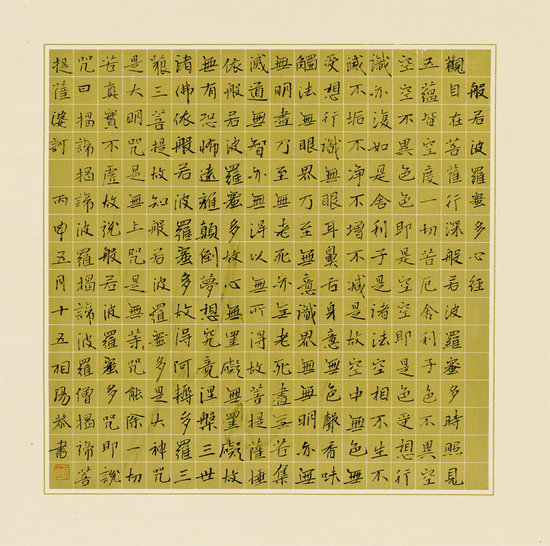 般若波羅蜜多心経
觀自在菩薩行深般若波羅蜜多時照見
五蘊皆空度一切苦厄舍利子色不異空
空空不異色色即是空空即是色受想行
識亦復如是舍利子是諸法空相不生不
滅不垢不淨不增不減是故空中無色無
受想行識無眼耳鼻舌身意無色聲香味
觸法無眼界乃至無意識界無無明亦無
無明盡乃至無老死亦無老死盡無苦集
滅道無智亦無得以無所得故菩提薩埵
依般若波羅蜜多故心無罣礙無罣礙故
無有恐怖遠離顛倒夢想究竟涅槃三世
諸佛依般若波羅蜜多故得阿耨多羅三
藐三菩提故知般若波羅蜜多是大神咒
是大明咒是無上咒是無等咒能除一切
苦真實不虛故說般若波羅蜜多咒即說
咒曰揭諦揭諦波羅揭諦波羅僧揭諦菩
提薩婆訶 丙申五月十五相陽恭書